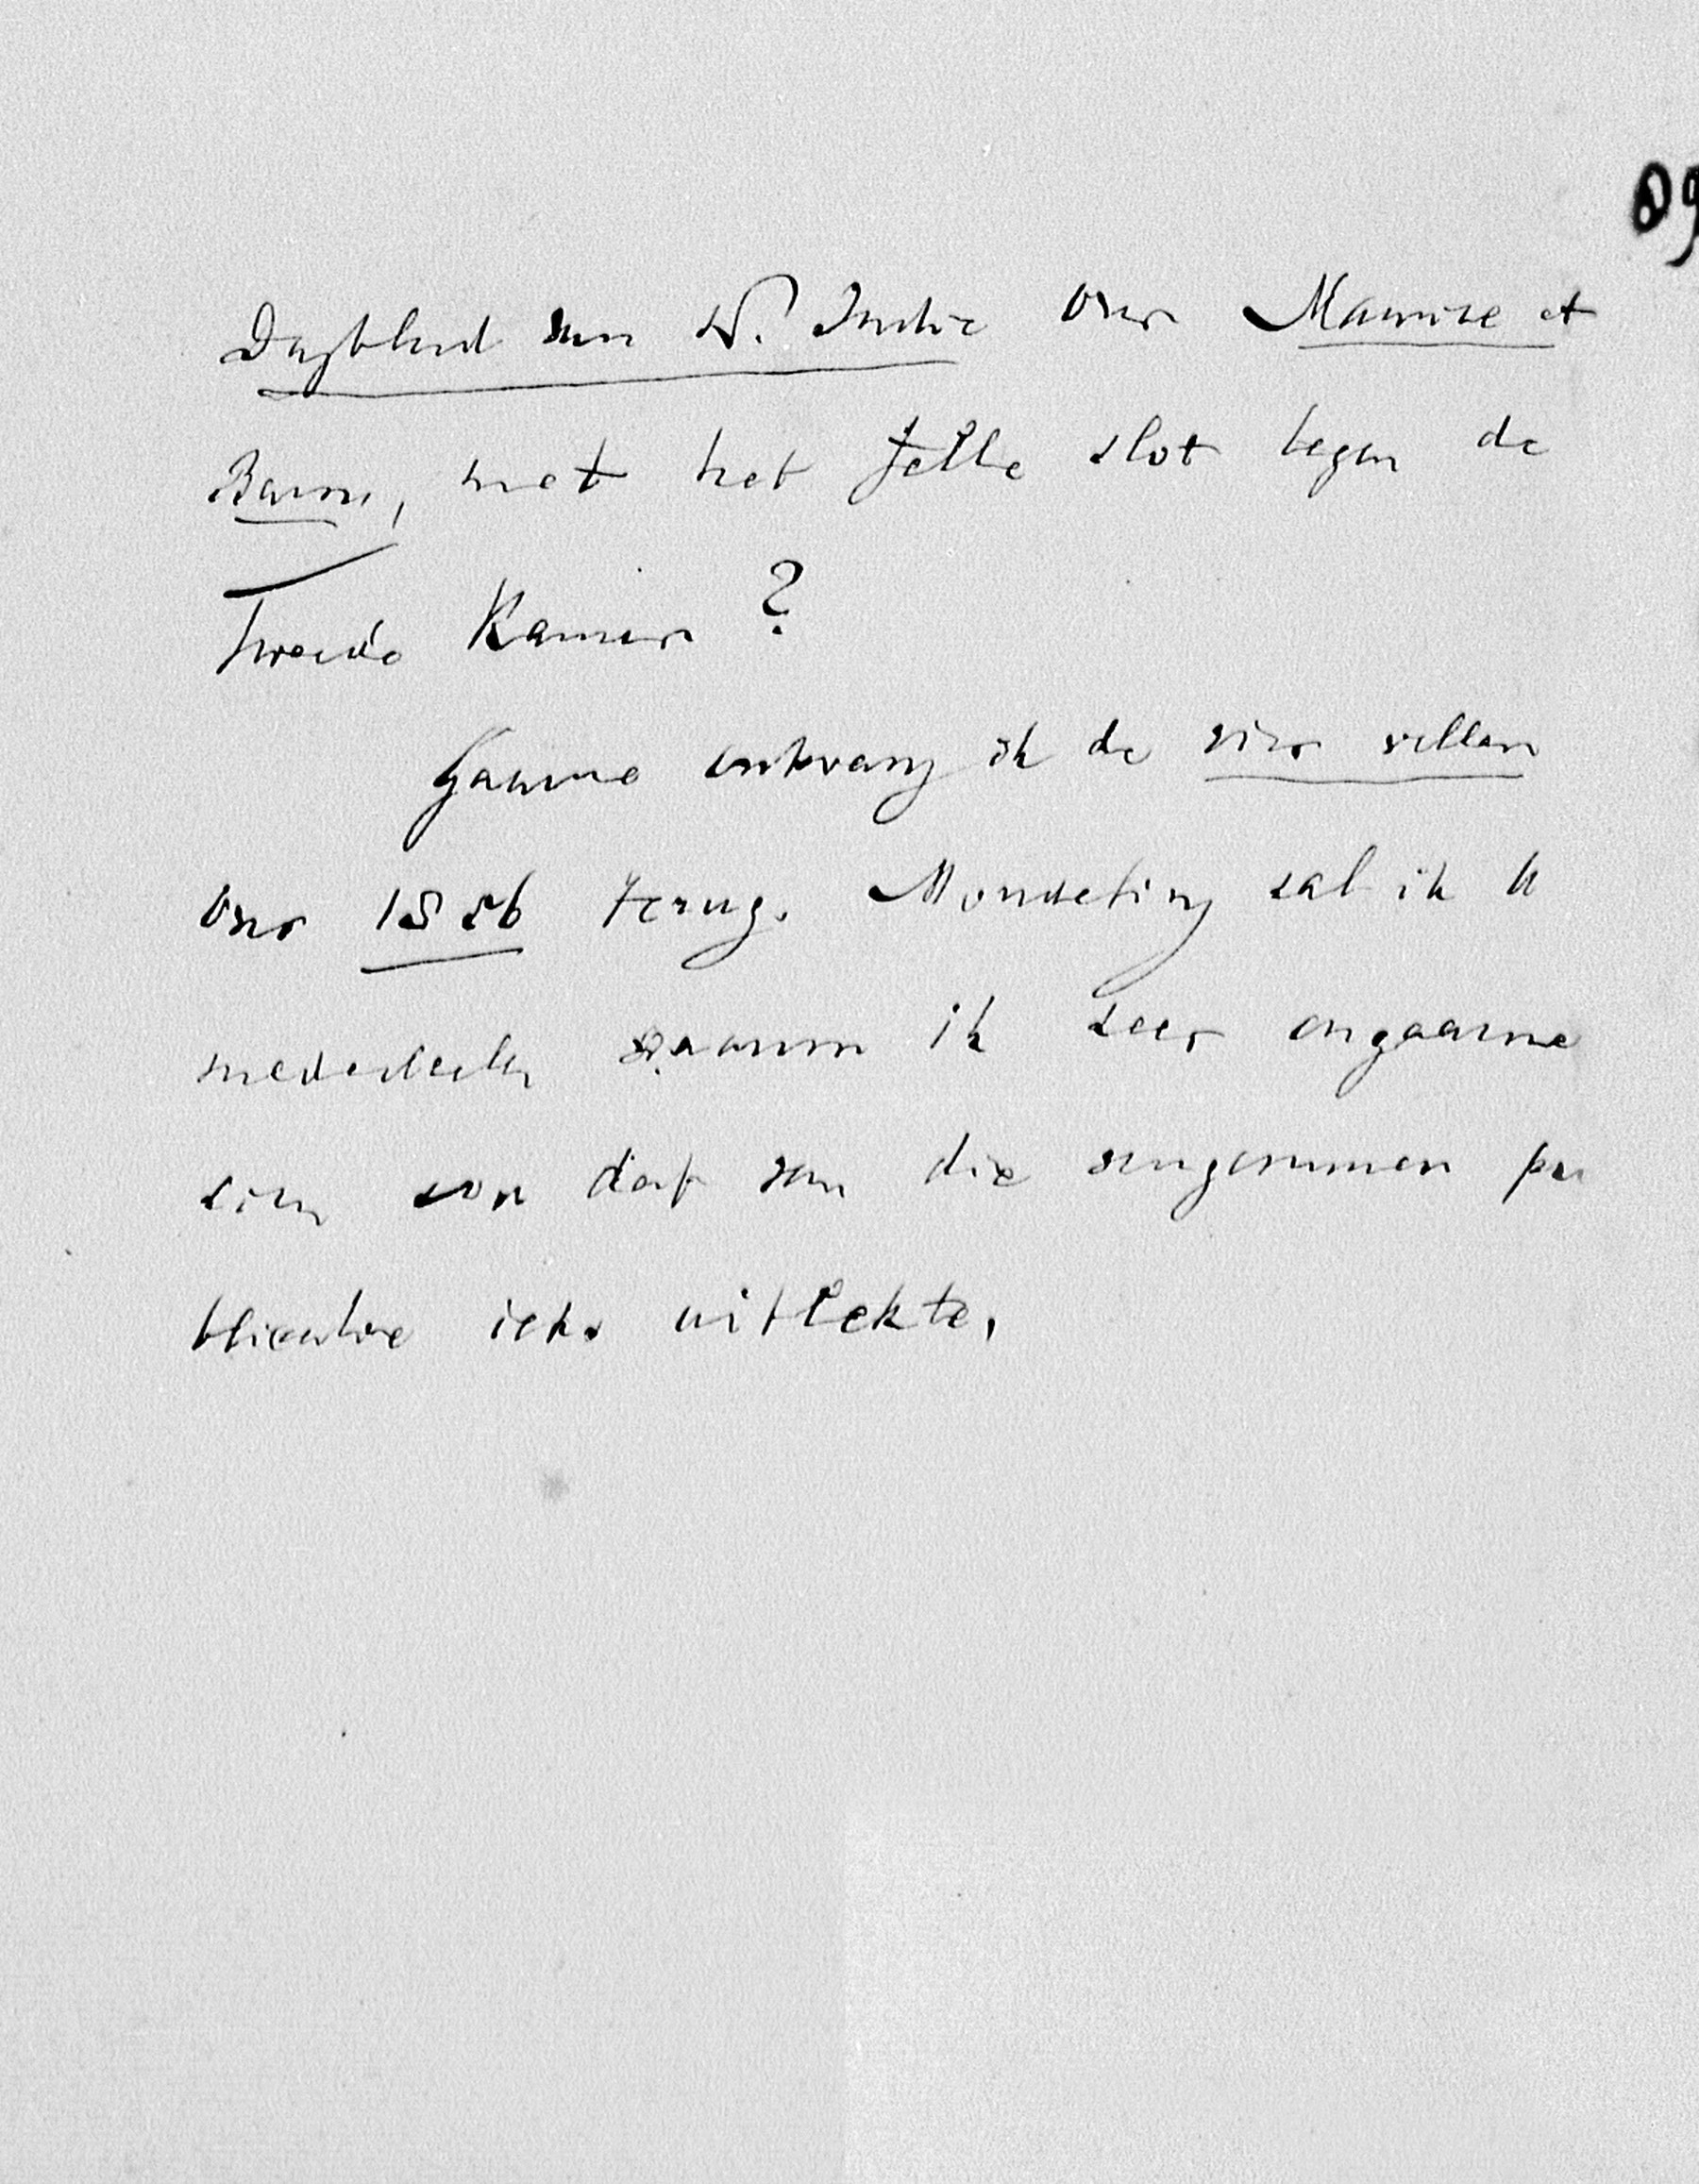 89
Dagblad van N. Indië over Maurice et
Baron, met het felle slot tegen de
Tweede Kamer?
Gaarne ontvang ik de vier vellen
over terug. Mondeling zal ik U
mededeelen waarom ik zeer ongaarne
zien zou dat van die voorgenomen pu
blicatie iets uitlekte.